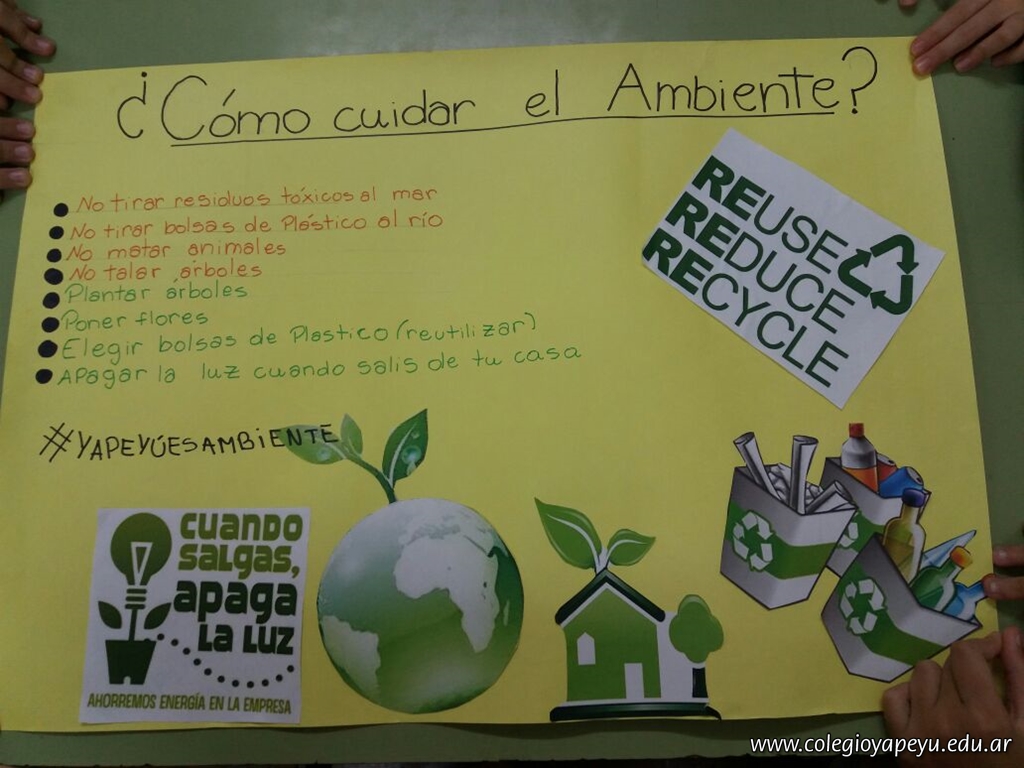 ¿Cómo cuidar el Ambiente?
No tirar residuos tóxicos al mar
No tirar bolsas de Plástico al río
No matar animales
No talar árboles
Plantar árboles
Poner flores
Elegir bolsas de Plastico (reutilizar)
Apagar la luz cuando salis de tu casa
#YAPEYÚESAMBIENTE
REUSE
REDUCE
RECYCLE
CUANDO
SALGAS,
apaga
LA LUZ
AHORREMOS ENERGÍA EN LA EMPRESA
www.colegioyapeyu.edu.ar